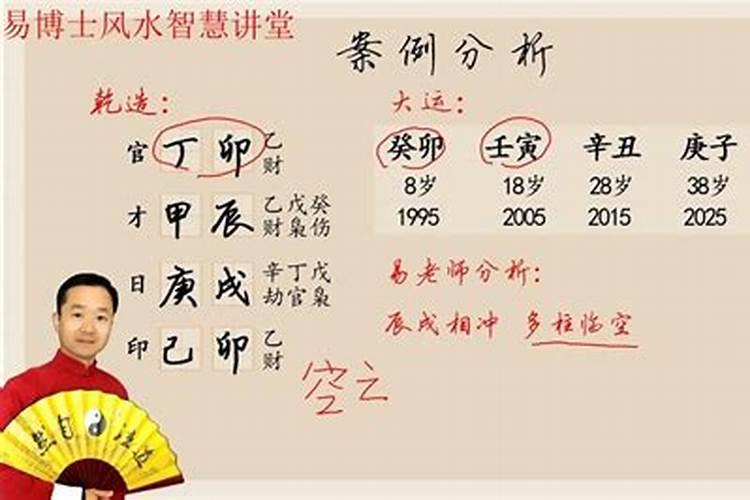 易博士风水智慧讲堂
案例分析
乾造：
官 丁 卯 乙
财
才 甲 辰 乙戊癸
财枭伤
日 庚 戌 辛丁戊
劫官枭
印 己 卯 乙
财
大运：
癸卯 壬寅 辛丑 庚子
8岁 18岁 28岁 38岁
1995 2005 2015 2025
易老师分析：
辰戌相冲 多柱临空
空亡
道法自然